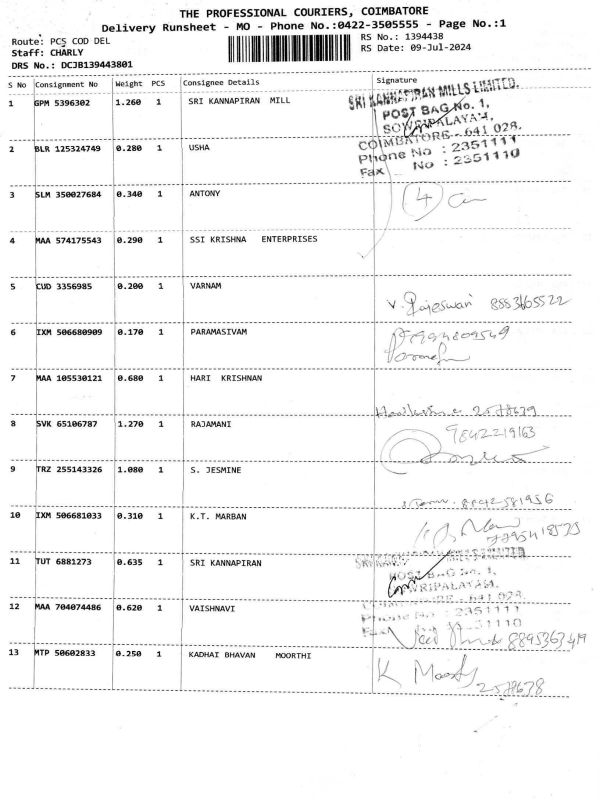 THE PROFESSIONAL COURIERS, COIMBATORE
Delivery Runsheet - MO - Phone No.:0422-3505555 - Page No.:1
Route: PCS COD DEL
RS No.: 1394438
Staff: CHARLY
RS Date: 09-Jul-2024
DRS No.: DCJB139443801
S No Consignment No Weight PCS Consignee Details Signature
1 GPM 5396302 1.260 1 SRI KANNAPIRAN MILL
SRI KANNAPIRAN MILLS LIMITED.
POST BAG No. 1,
SOWRIPALAYAM,
COIMBATORE - 641 028.
Phone No : 2351111
Fax No : 2351110
2 BLR 125324749 0.280 1 USHA
3 SLM 350027684 0.340 1 ANTONY
4
4 MAA 574175543 0.290 1 SSI KRISHNA ENTERPRISES
5 CUD 3356985 0.200 1 VARNAM
V. Rajeswari
6 IXM 506680909 0.170 1 PARAMASIVAM
7 MAA 105530121 0.680 1 HARI KRISHNAN
8 SVK 65106787 1.270 1 RAJAMANI
9842219163
9 TRZ 255143326 1.080 1 S. JESMINE
10 IXM 506681033 0.310 1 K.T. MARBAN
11 TUT 6881273 0.635 1 SRI KANNAPIRAN
SRI KANNAPIRAN MILLS LIMITED
POST BAG No. 1,
SOWRIPALAYAM,
COIMBATORE - 641 028.
Phone No : 2351111
Fax No : 2351110
12 MAA 704074486 0.620 1 VAISHNAVI
8895363419
13 MTP 50602833 0.250 1 KADHAI BHAVAN MOORTHI
K Moorthy